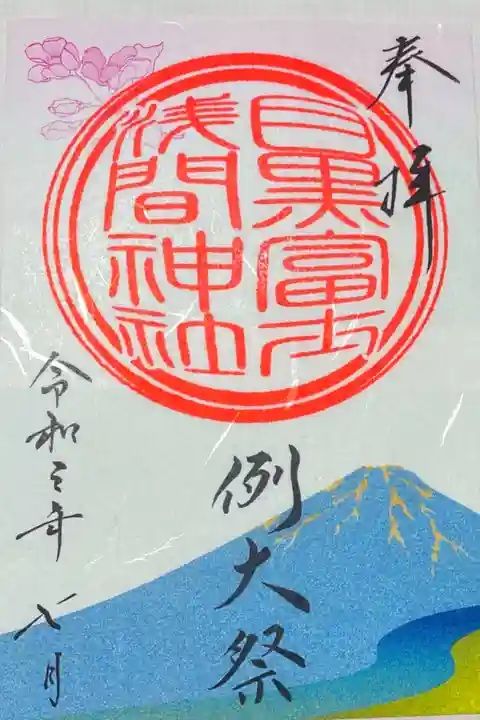 奉拝
目黒富士
浅間神社
例大祭
令和三年 七月